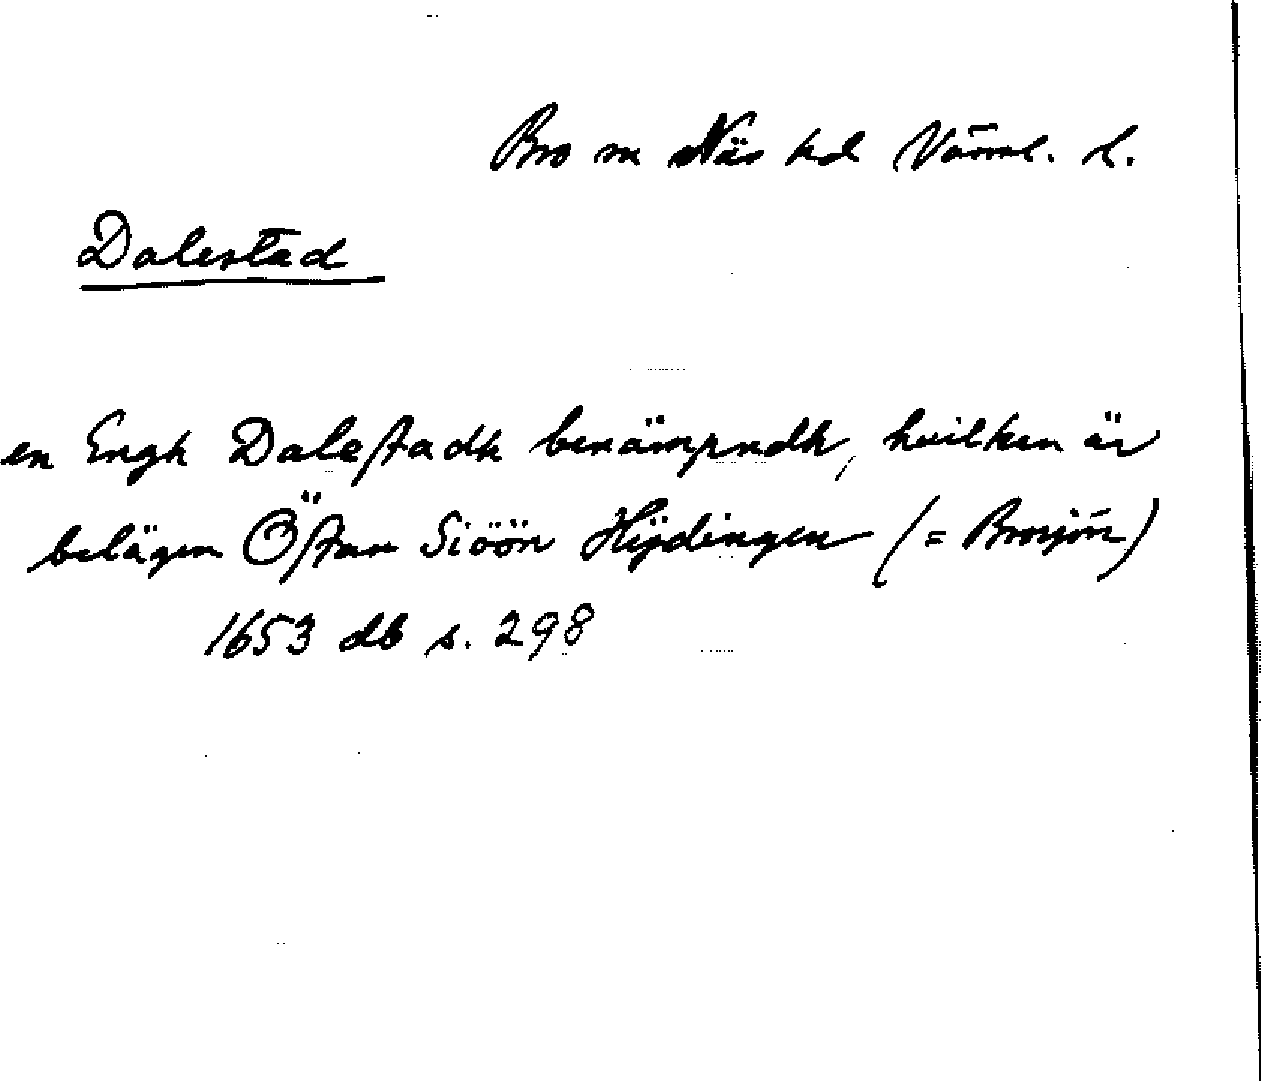 Bro sn Näs hd Värml. l.
Dalestad
en Engh Dalestadh benämpndh, huilken är
belägen Östan Siöön Hÿdingen (= Brosjön)
1653 db s. 298